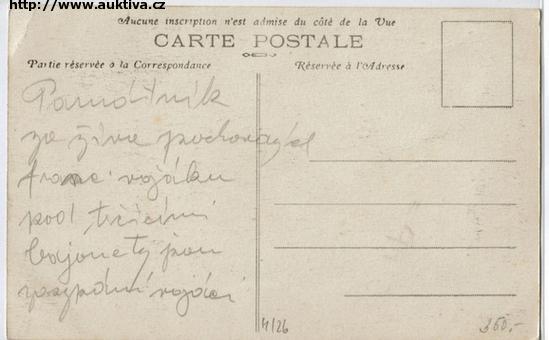 http://www.auktiva.cz
Aucune inscription n'est admise du côté de la Vue
CARTE POSTALE
Partie réservée à la Correspondance
Réservée à l'Adresse
Pamětník
za živa pochovaných
franc. vojáku
pod trčícími
bajonety jsou
zasypáni vojáci
4/26
350,-